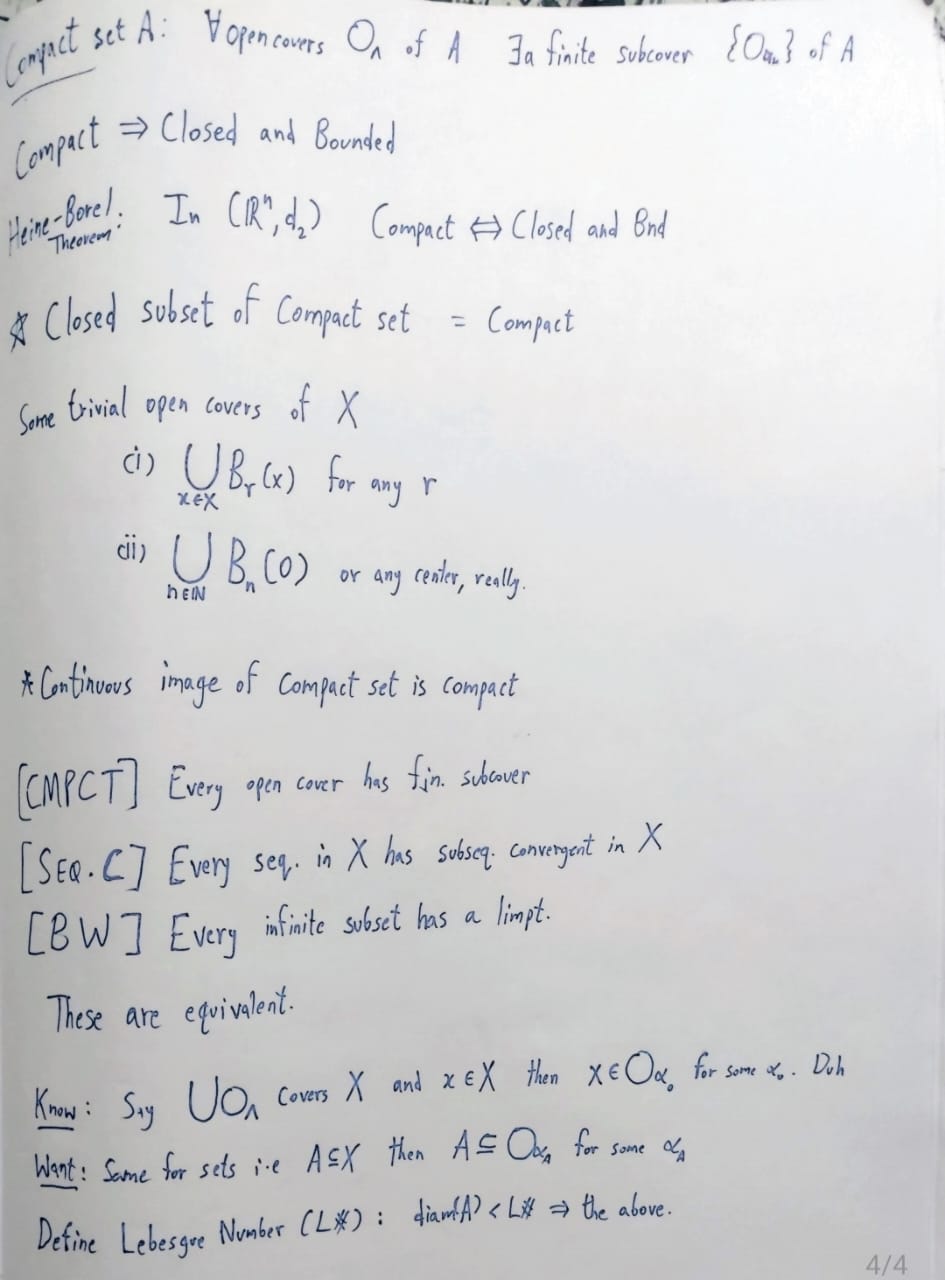 Compact set A: ∀ open covers O_Λ of A ∃ a finite subcover {O_αₙ} of A
Compact ⇒ Closed and Bounded
Heine-Borel Theorem: In (ℝⁿ, d₂) Compact ⇔ Closed and Bnd
☆ Closed subset of Compact set = Compact
Some trivial open covers of X
(i) ⋃_{x∈X} B_r(x) for any r
(ii) ⋃_{n∈ℕ} B_n(0) or any center, really.
* Continuous image of Compact set is compact
[CMPCT] Every open cover has fin. subcover
[SEQ.C] Every seq. in X has subseq. convergent in X
[BW] Every infinite subset has a limpt.
These are equivalent.
Know: Say ⋃O_Λ Covers X and x∈X then x∈O_α₀ for some α₀. Duh
Want: Same for sets i.e A⊆X then A⊆O_α_A for some α_A
Define Lebesgue Number (L#): diam(A) < L# ⇒ the above.
4/4